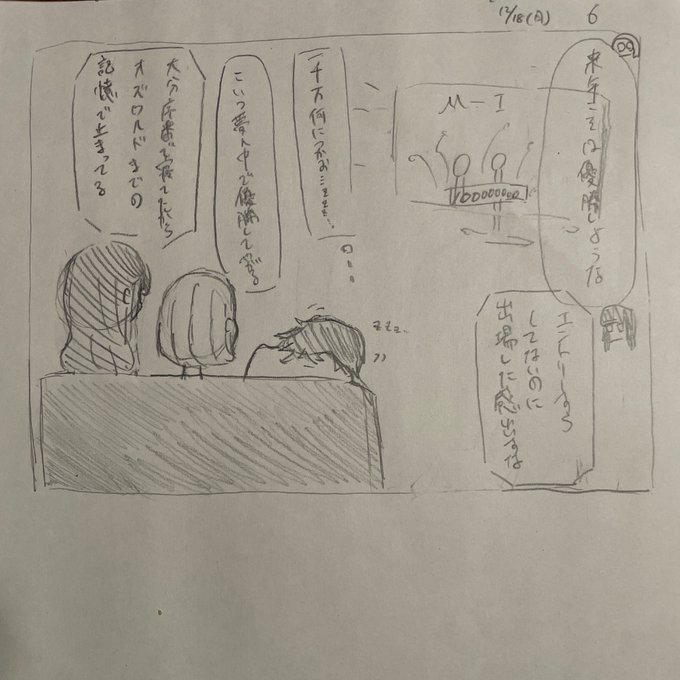 12/18(日)
6
来年こそは優勝しような
エントリーすら
してないのに
出場した感出すな
M-1
10000000
一千万何につかお…zzz…
こいつ夢ん中で優勝してやがる
大分序盤で寝てたから
オズワルドまでの
記憶で止まってる
zzz..